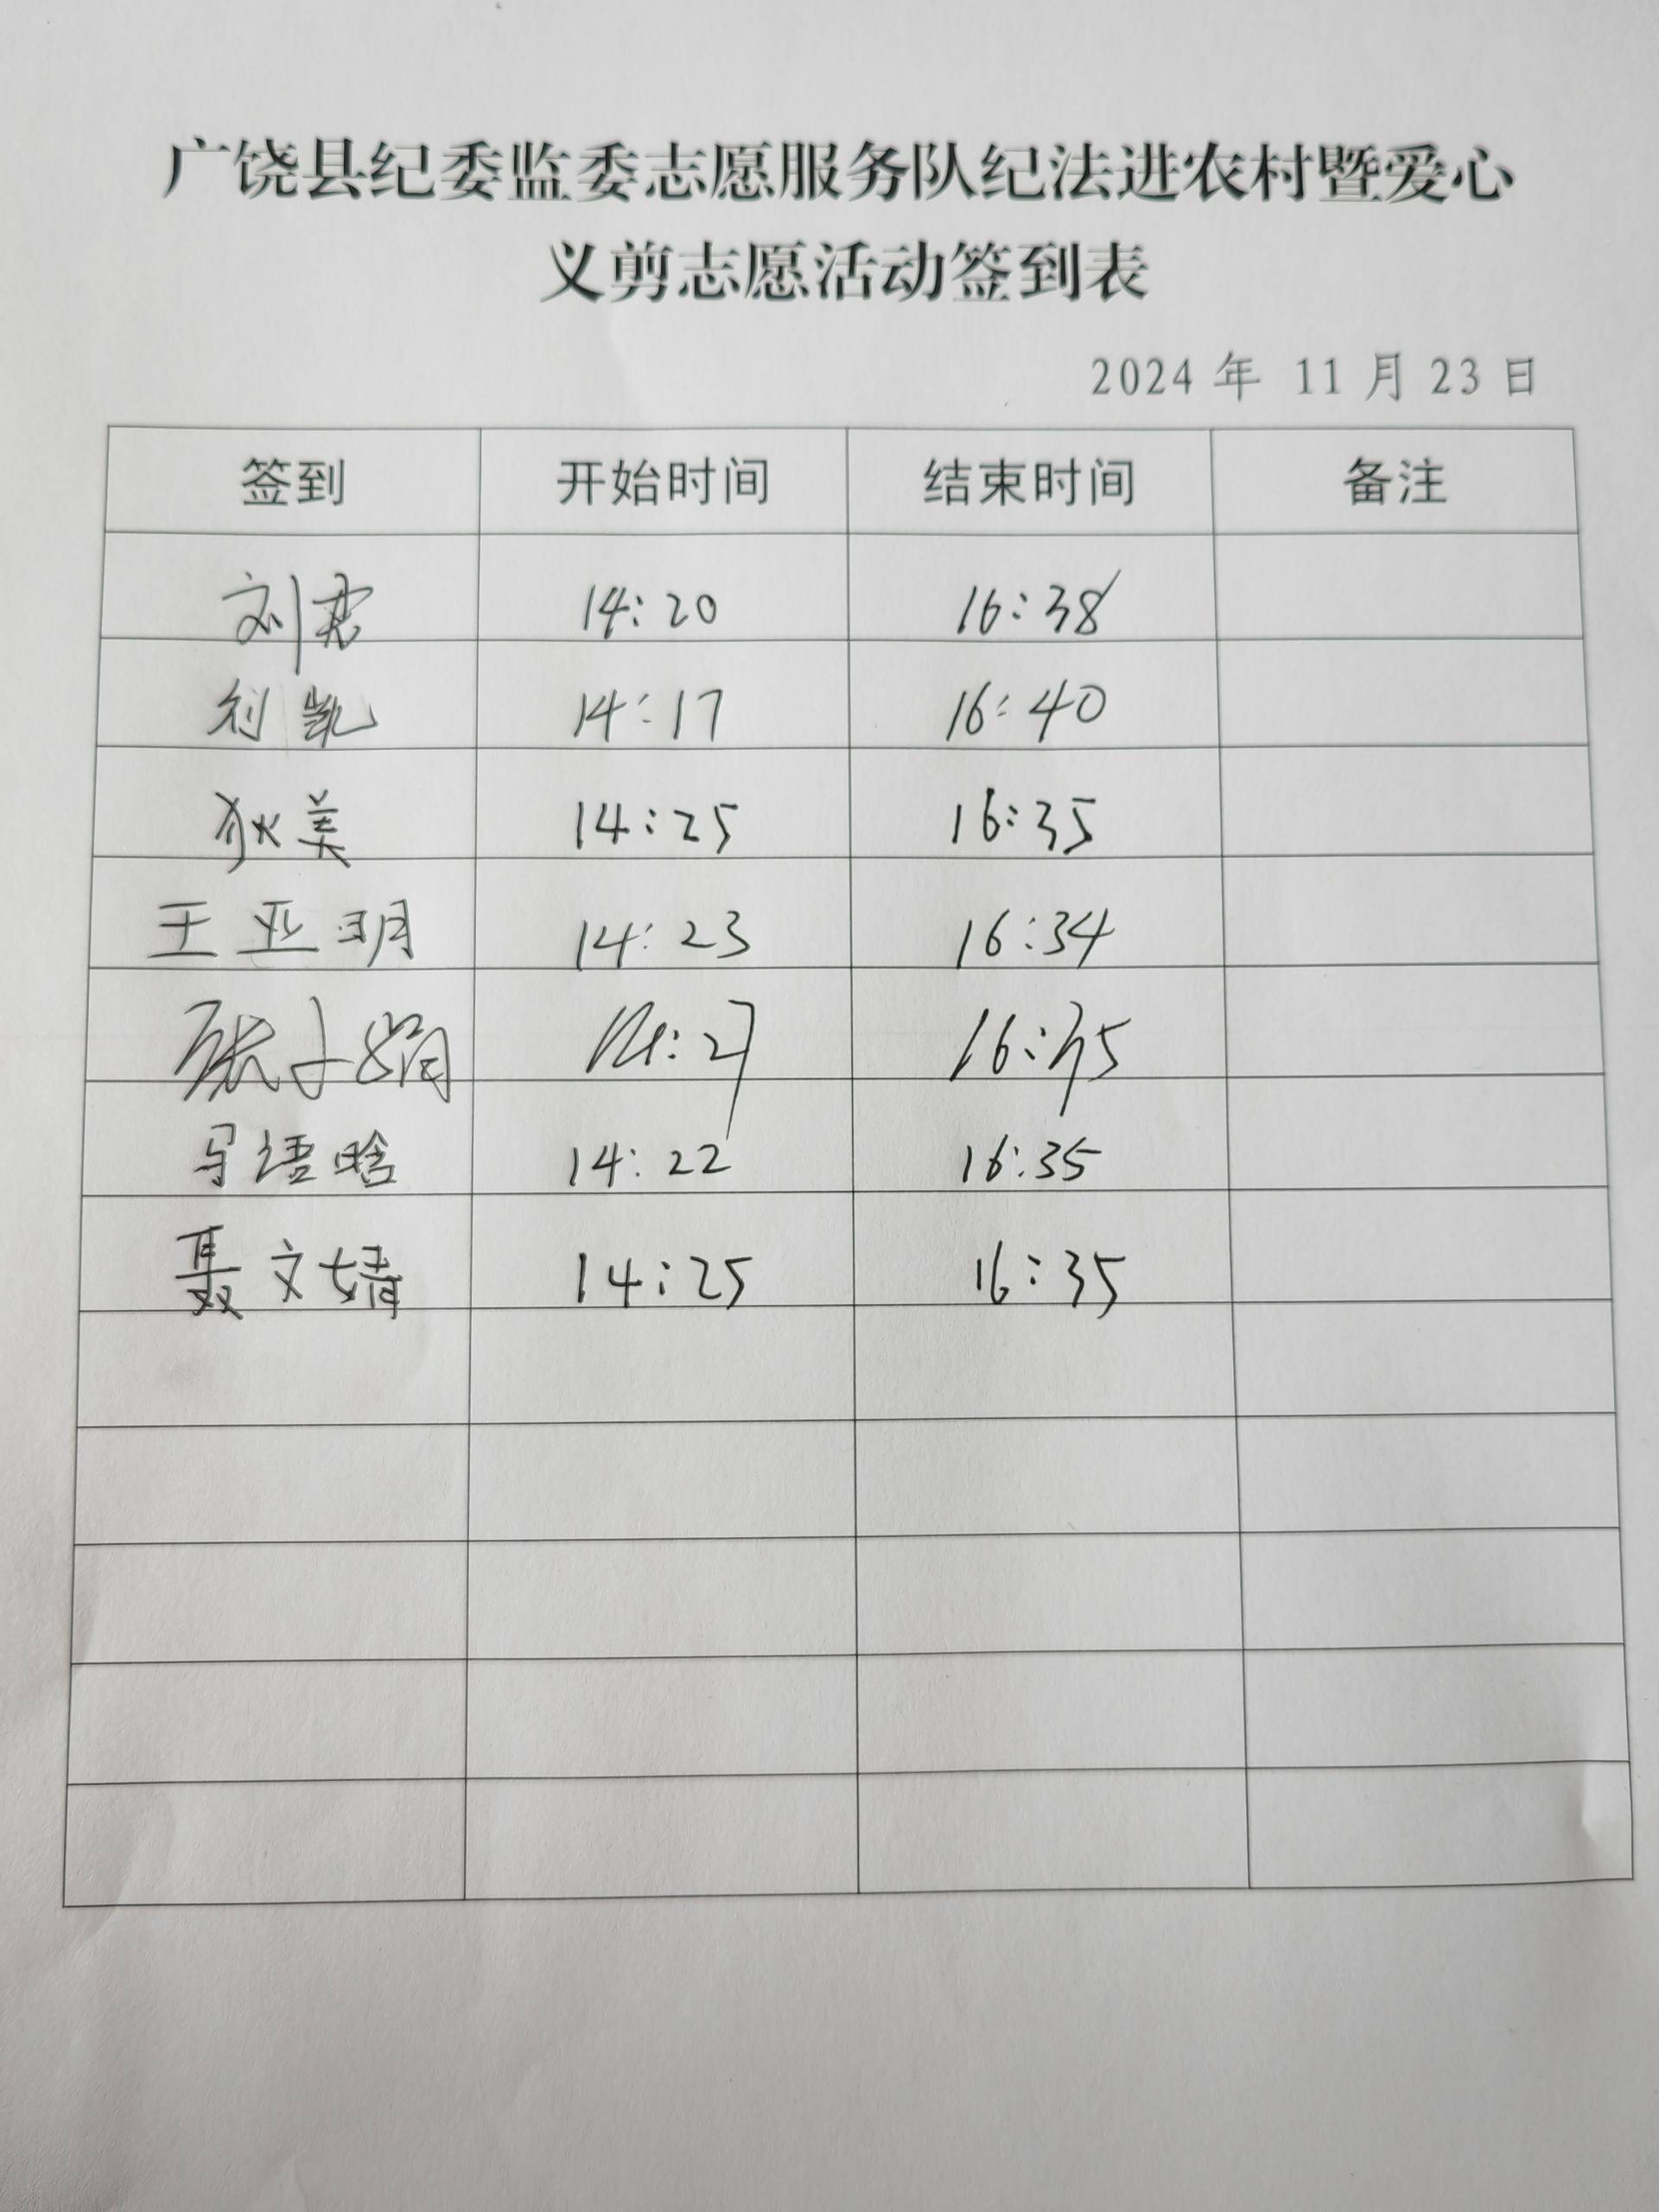 广饶县纪委监委志愿服务队纪法进农村暨爱心
义剪志愿活动签到表
2024 年 11 月 23 日
签到 开始时间 结束时间 备注
刘君 14:20 16:38
刘凯 14:17 16:40
狄美 14:25 16:35
王亚明 14:23 16:34
张子娟 14:27 16:35
语晗 14:22 16:35
聂文婧 14:25 16:35